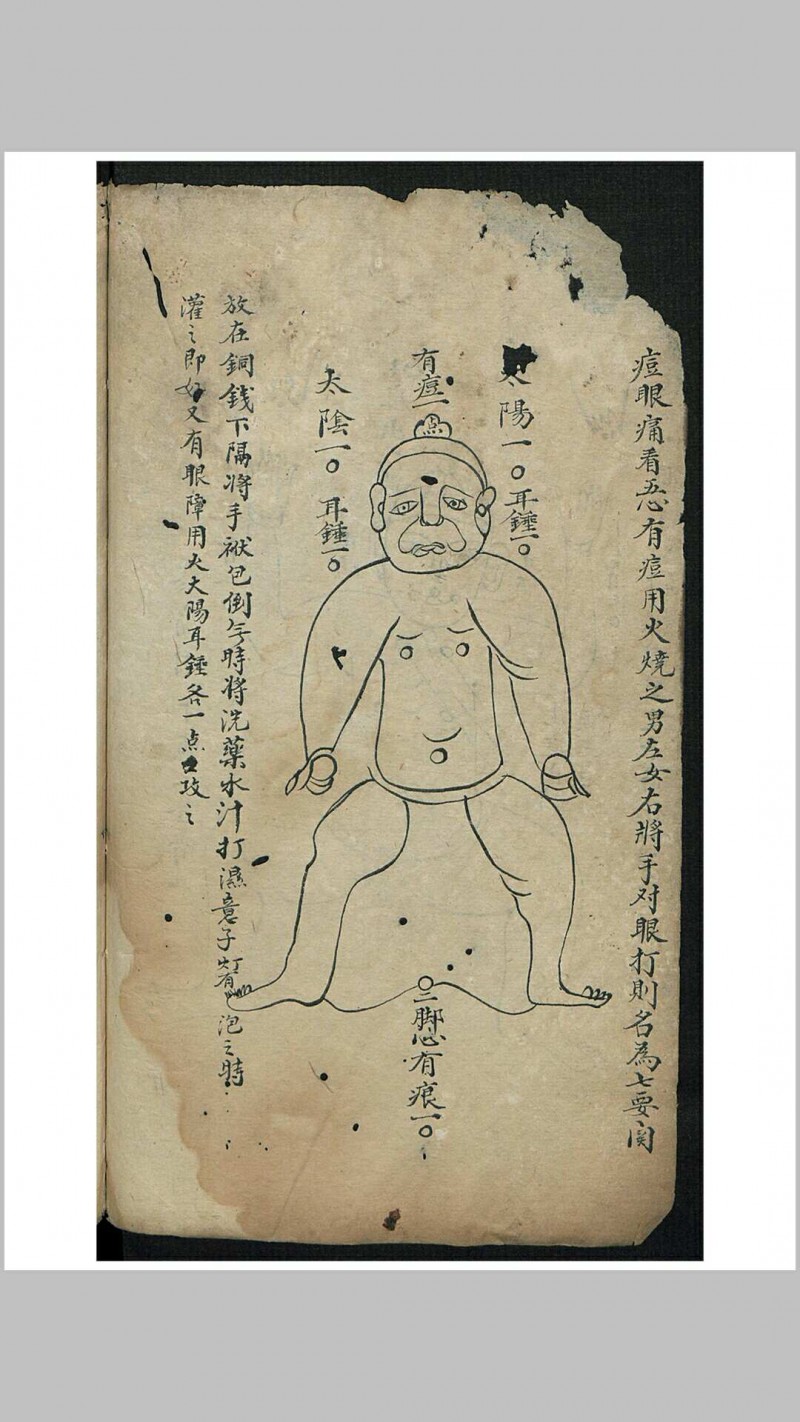 痘眼痛看五心有痘用火燒之男左女右將手对眼打則名為七要関
太陽一〇
耳錘一〇
有痘一
点
太陰一〇
耳錘一〇
〇二脚心有痕一〇
放在銅錢下隔將手袱包倒午時將洗藥水汁打濕意子 泡之時
灌之即好又有眼障用火大陽耳錘各一点 攻之